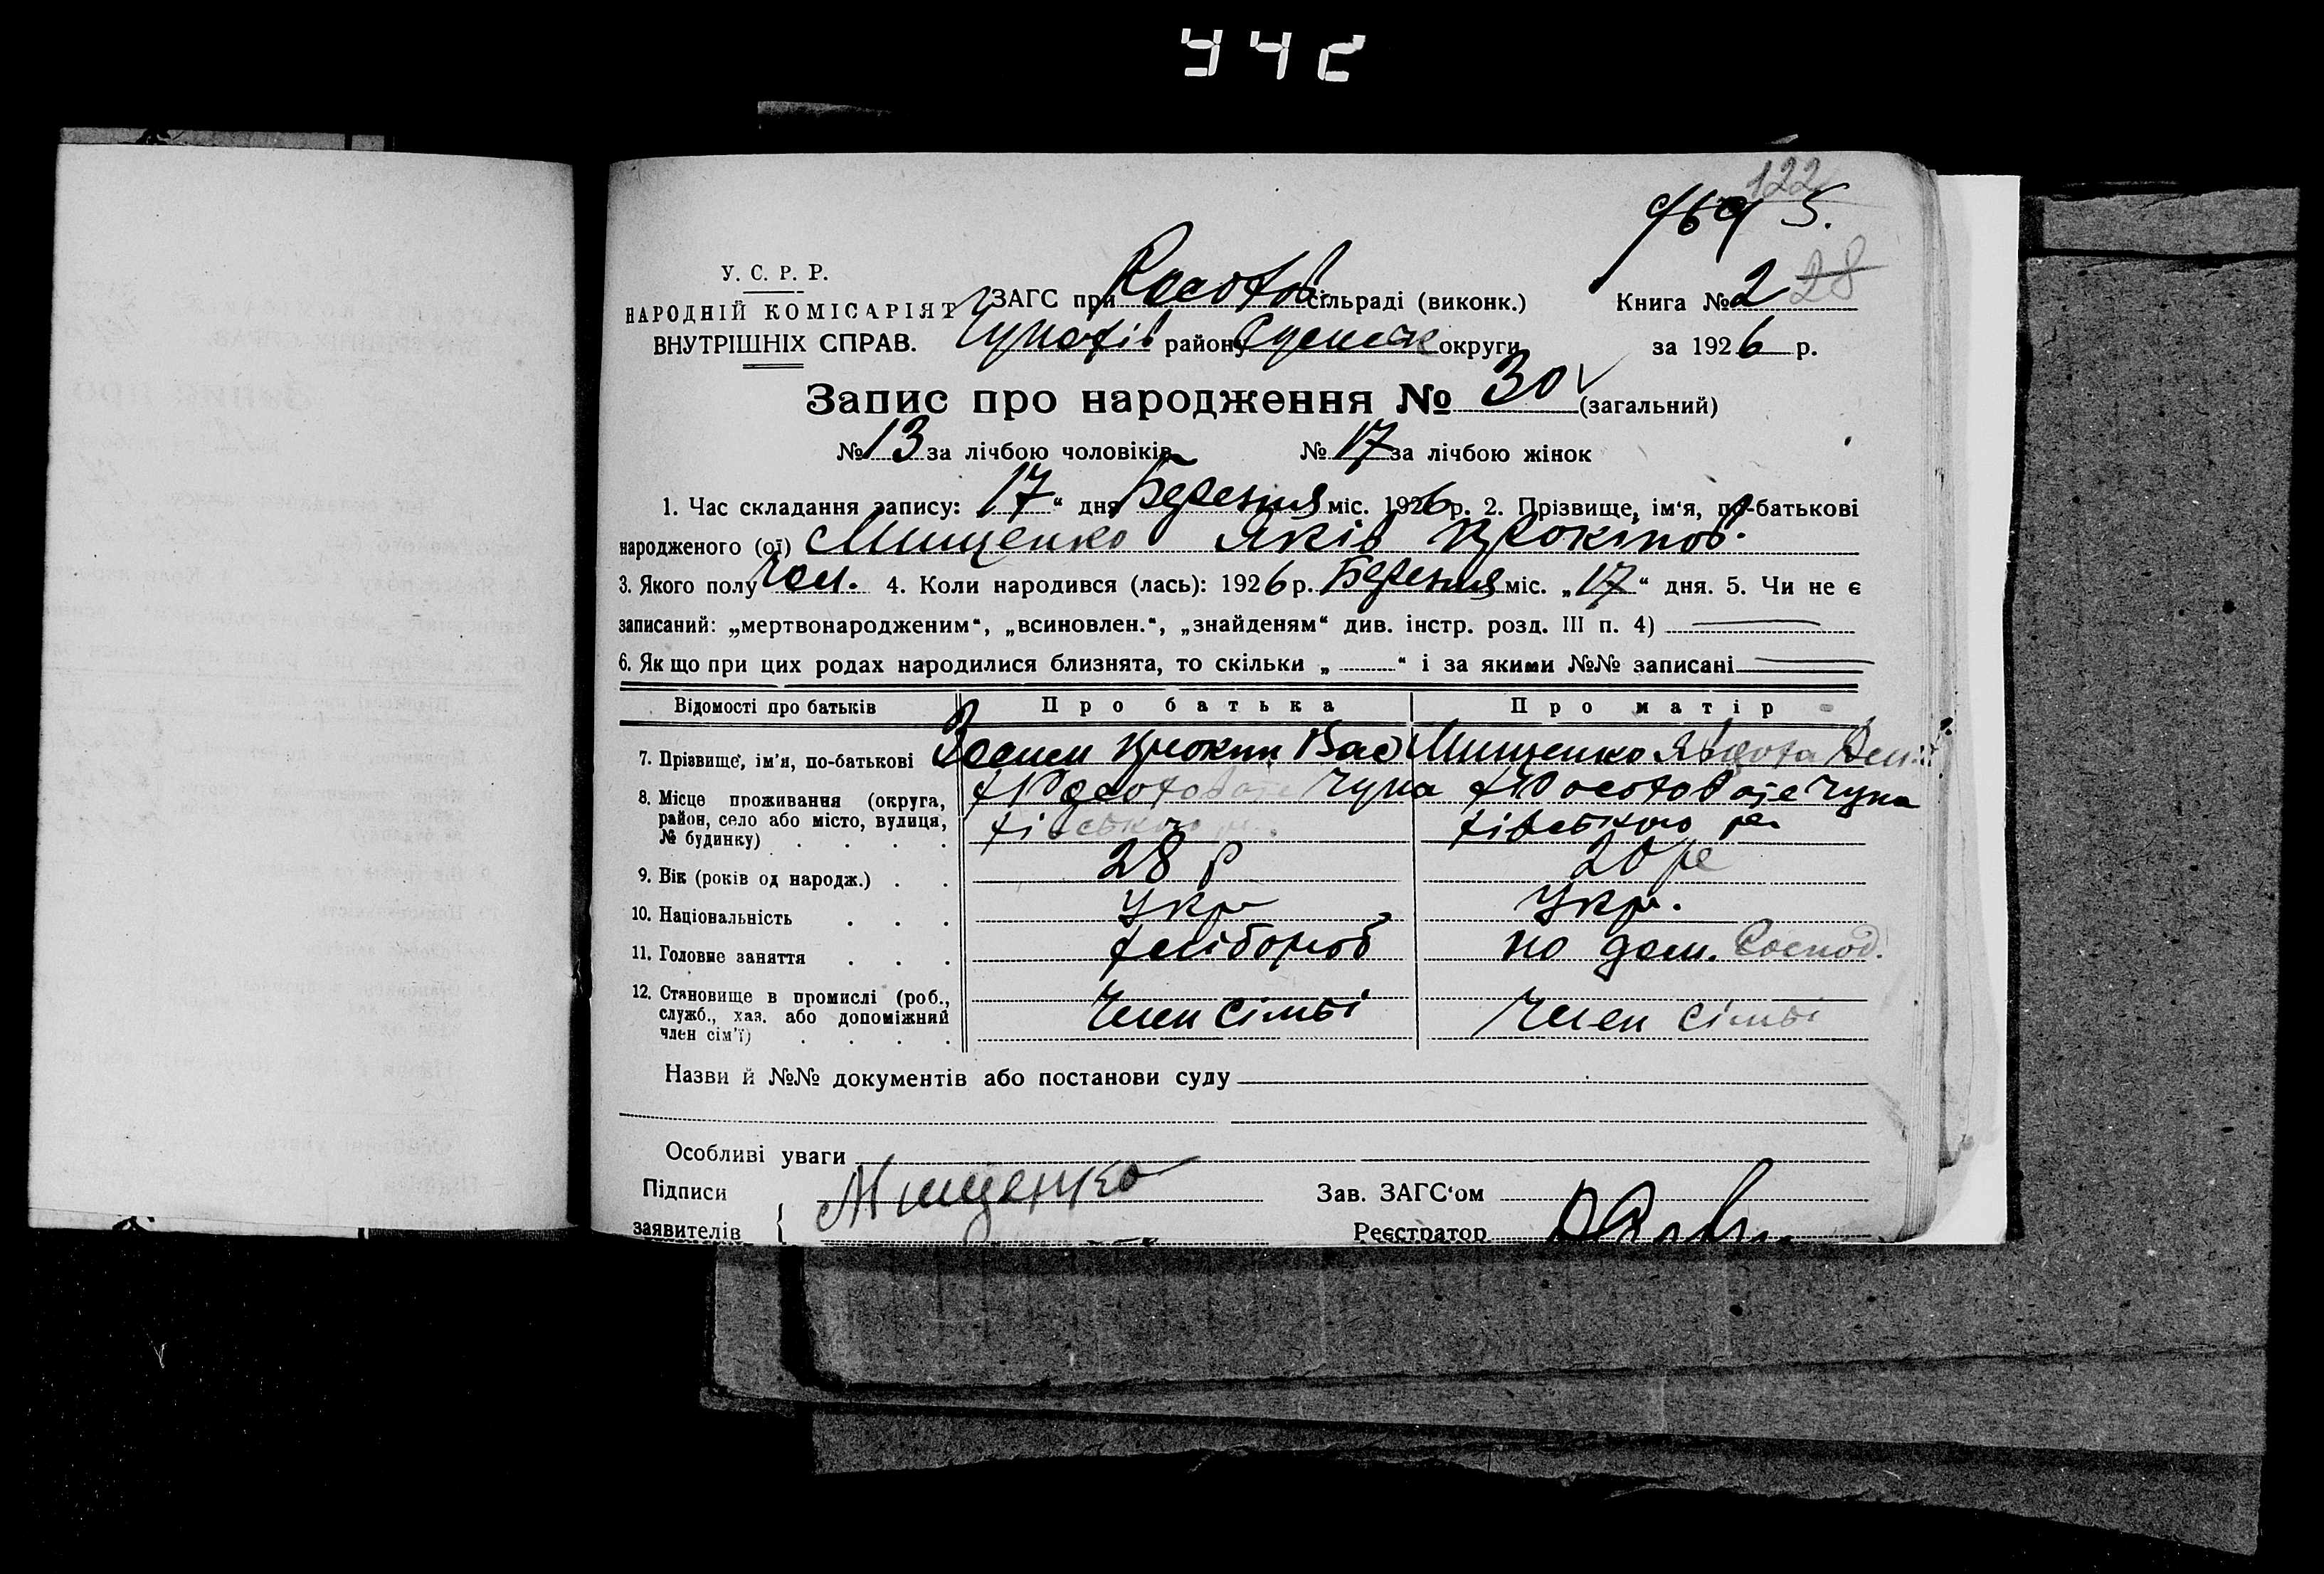 442
122
У. С. Р. Р.
НАРОДНІЙ КОМІСАРІЯТ
ВНУТРІШНІХ СПРАВ.
ЗАГС при сільраді (виконк.)
Книга № 2 28
району округи
за 1926 р.
Запис про народження № 30 (загальний)
№ 13 за лічбою чоловіків № 17 за лічбою жінок
1. Час складання запису: 17 “ дня Березня міс. 1926 р. 2. Прізвище, ім‘я, по-батькові
народженого (ої) Мищенко Яків
3. Якого полу Чол. 4. Коли народився (лась): 1926 р. Березня міс. „17“ дня. 5. Чи не є
записаний: „мертвонародженим“, „всиновлен.“, „знайденям“ див. інстр. розд. III п. 4)
6. Якщо при цих родах народилися близнята, то скільки „ “ і за якими №№ записані
Відомості про батьків Про батька Про матір
7. Прізвище, ім’я, по-батькові Мищенко
8. Місце проживання (округа,
район, село або місто, вулиця,
№ будинку)
9. Вік (років од народж.) 28 р 20 р
10. Національність Укр Укр.
11. Головне заняття хлібороб по дом. господ.
12. Становище в промислі (роб.,
служб., хаз. або допоміжний
член сім’ї) Член сімьі Член сімьі
Назви й №№ документів або постанови суду
Особливі уваги
Підписи Мищенко Зав. ЗАГС‘ом
заявителів { Реєстратор